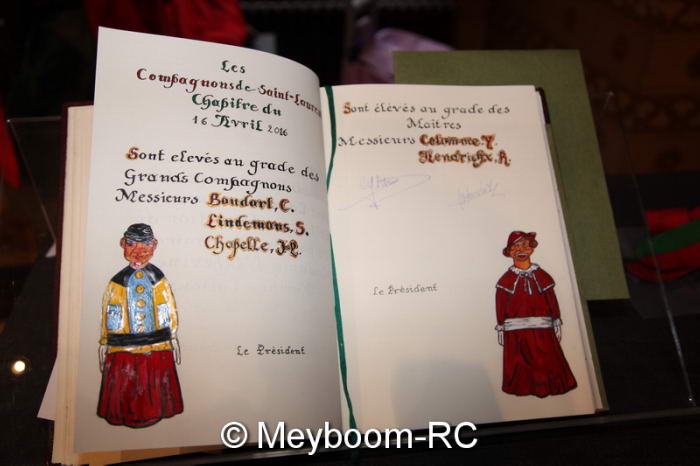 Les
Compagnons de Saint-Lauren
Chapitre du
16 Avril 2016
Sont elevés au grade des
Grands Compagnons
Messieurs Boudart, C.
Lindemans, S.
Chapelle, J-P.
Le Président
Sont élévés au grade des
Maitres
Messieurs Colomme, Y.
Hendrickx, R.
Le Président
© Meyboom-RC